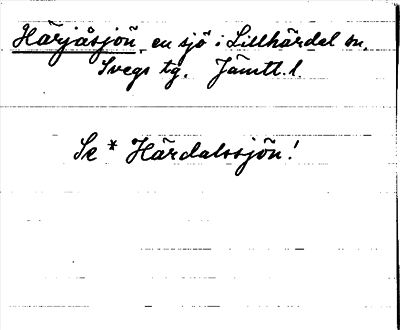 Härjåsjön, en sjö i Lillhärdal sn.
Svegs tg. Jämtl. l.
Se * Härdalssjön!